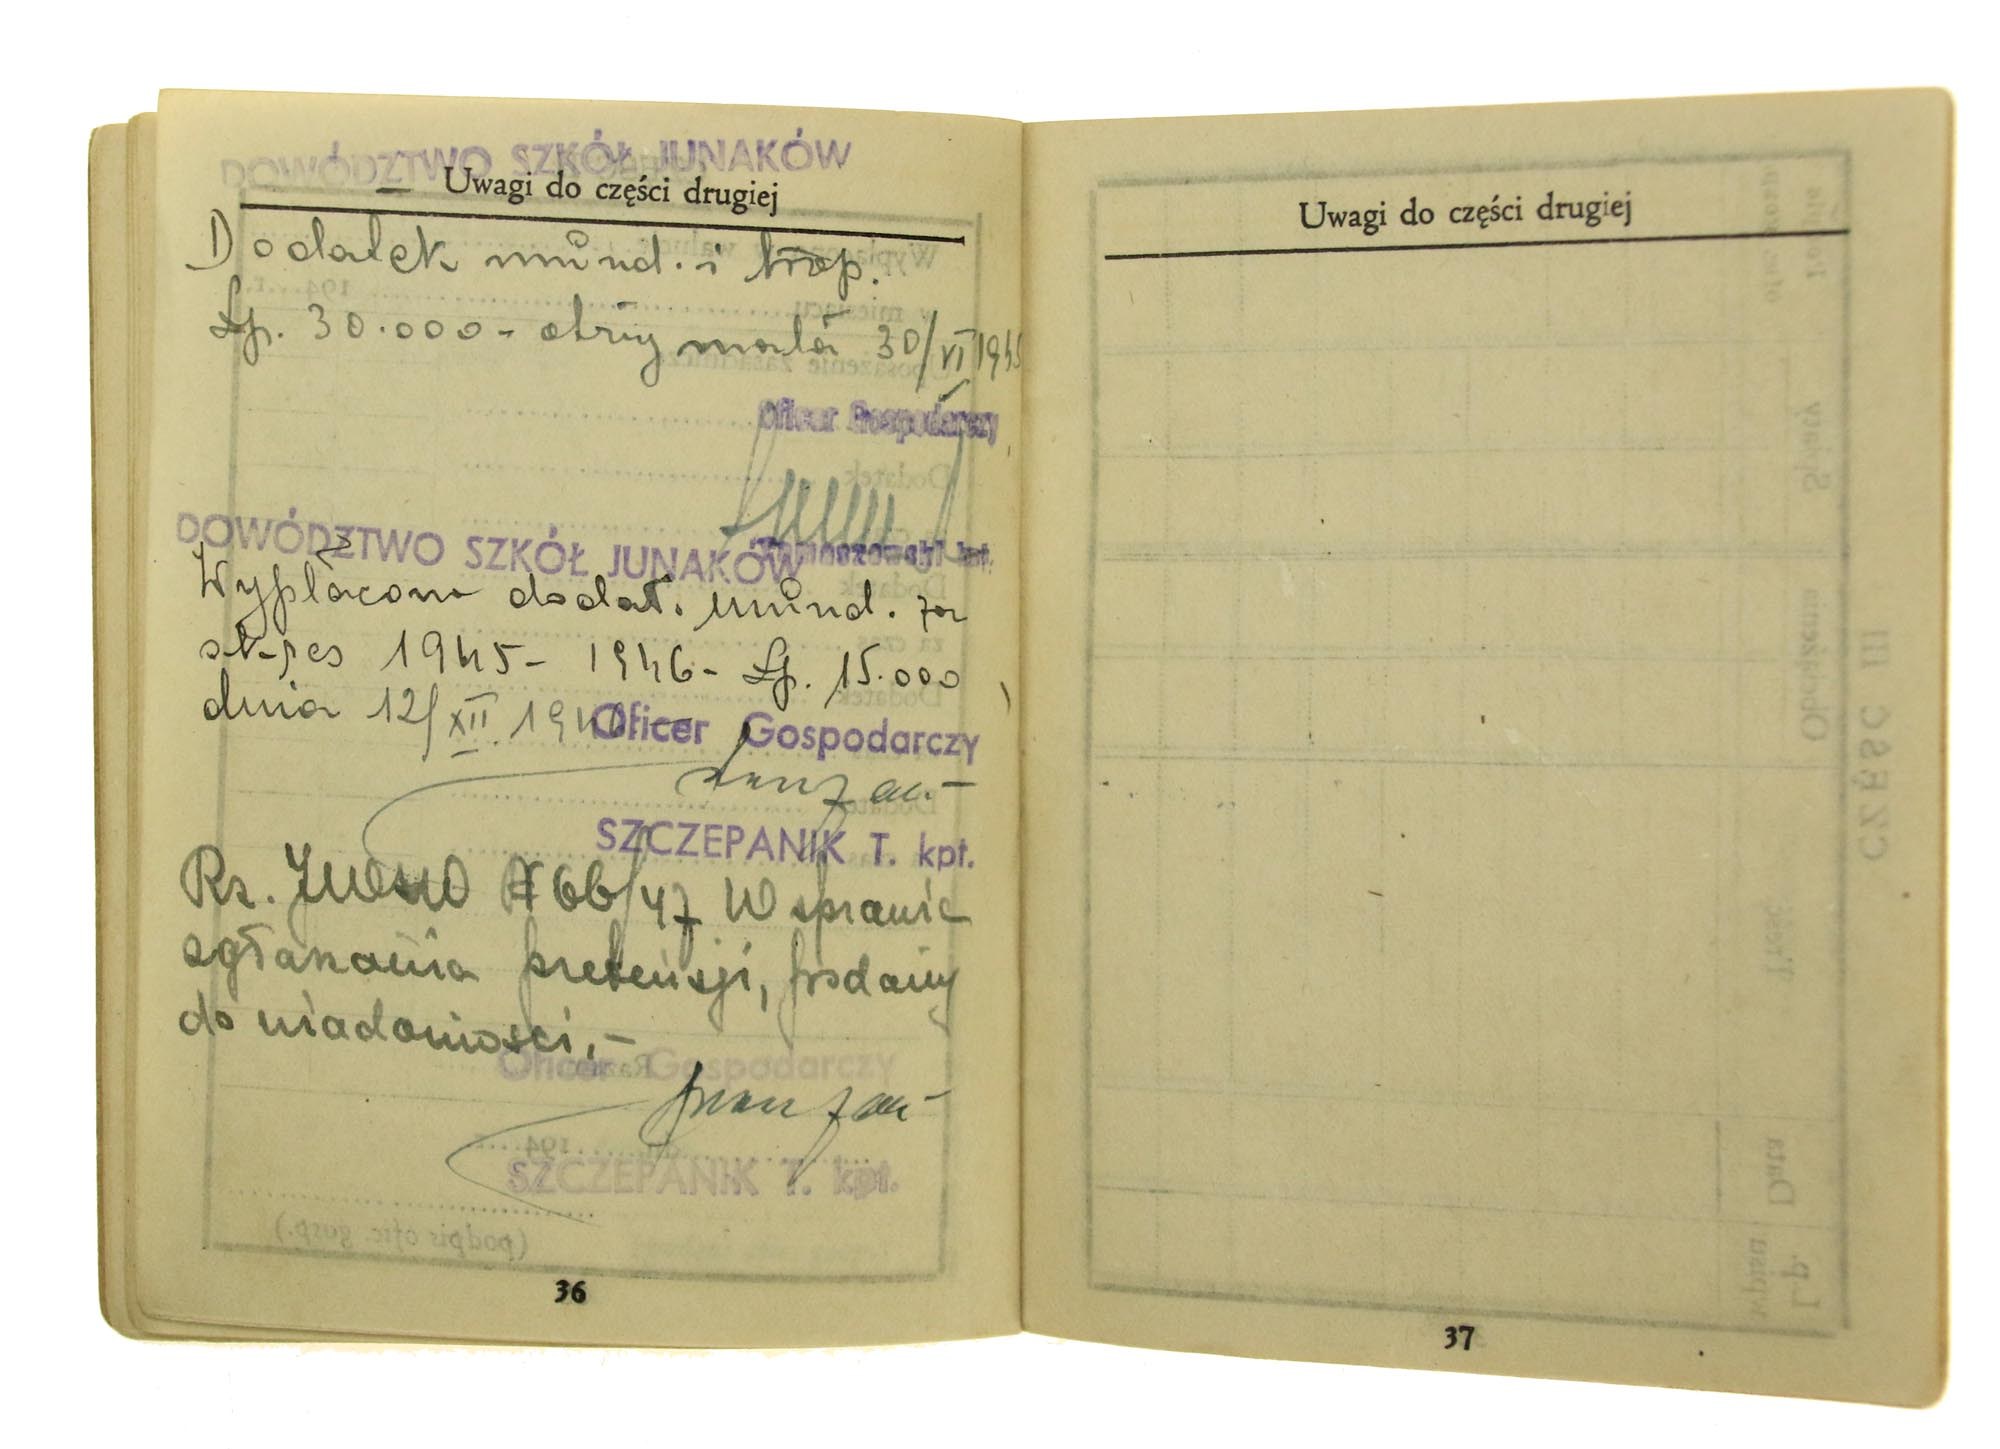 DOWÓDZTWO SZKÓŁ JUNAKÓW
Uwagi do części drugiej
Dodatek mund. i trop.
Lp. 30.000 - otrzymała 30/VI 1945
Oficer Gospodarczy
kpt.
DOWÓDZTWO SZKÓŁ JUNAKÓW
Wypłacono dodat. mund. za
okres 1945 - 1946 - Lp. 15.000
dnia 12/XII. 1946
Oficer Gospodarczy
SZCZEPANIK T. kpt.
Rz. 66/47 W sprawie
zgłaszania pretensji, podany
do wiadomości,-
Oficer Gospodarczy
SZCZEPANIK T. kpt.
36
Uwagi do części drugiej
37